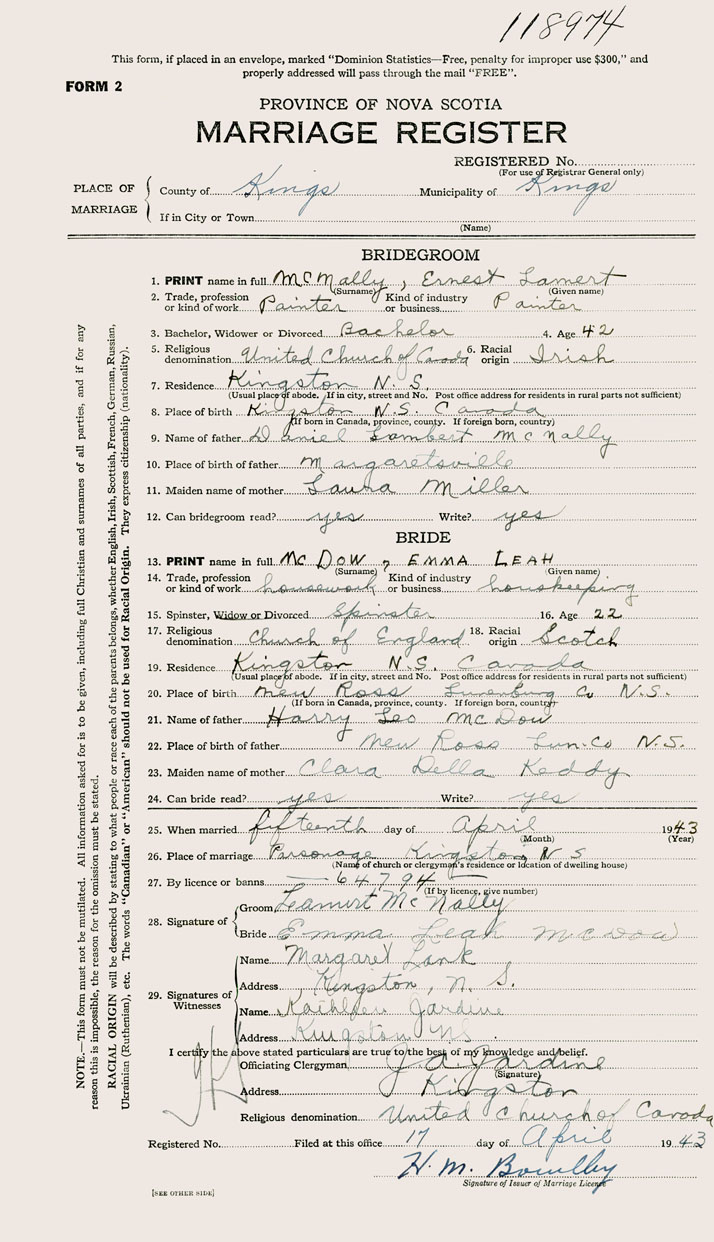 118974
This form, if placed in an envelope, marked "Dominion Statistics—Free, penalty for improper use $300," and
properly addressed will pass through the mail "FREE".
FORM 2
PROVINCE OF NOVA SCOTIA
MARRIAGE REGISTER
REGISTERED No.
(For use of Registrar General only)
PLACE OF MARRIAGE
County of Kings Municipality of Kings
If in City or Town
(Name)
BRIDEGROOM
1. PRINT name in full McMally, Ernest Lamert
(Surname) (Given name)
2. Trade, profession or kind of work Painter Kind of industry or business Painter
3. Bachelor, Widower or Divorced Bachelor 4. Age 42
5. Religious denomination United Church of Canada 6. Racial origin Irish
7. Residence Kingston N.S.
(Usual place of abode. If in city, street and No. Post office address for residents in rural parts not sufficient)
8. Place of birth Kingston N.S. Canada
(If born in Canada, province, county. If foreign born, country)
9. Name of father Daniel Lambert McNally
10. Place of birth of father Margaretsville
11. Maiden name of mother Laura Miller
12. Can bridegroom read? yes Write? yes
BRIDE
13. PRINT name in full McDow, EMMA LEAH
(Surname) (Given name)
14. Trade, profession or kind of work housework Kind of industry or business houskeeping
15. Spinster, Widow or Divorced Spinster 16. Age 22
17. Religious denomination Church of England 18. Racial origin Scotch
19. Residence Kingston N.S. Canada
(Usual place of abode. If in city, street and No. Post office address for residents in rural parts not sufficient)
20. Place of birth New Ross Lunenburg Co N.S.
(If born in Canada, province, county. If foreign born, country)
21. Name of father Harry Leo McDow
22. Place of birth of father New Ross Lun.Co N.S.
23. Maiden name of mother Clara Della Keddy
24. Can bride read? yes Write? yes
25. When married fifteenth day of April 1943
(Month) (Year)
26. Place of marriage Parsonage Kingston, N S
(Name of church or clergyman's residence or location of dwelling house)
27. By licence or banns 64794
(If by licence, give number)
28. Signature of
Groom Leamert McNally
Bride Emma Leah McDow
29. Signatures of Witnesses
Name Margaret Lank
Address Kingston, N. S.
Name Kathleen Jardine
Address Kingston NS
I certify the above stated particulars are true to the best of my knowledge and belief.
Officiating Clergyman J A Jardine
(Signature)
Address Kingston
Religious denomination United Church of Canada
Registered No. Filed at this office 17 day of April 1943
H. M. Boulby
Signature of Issuer of Marriage License
[SEE OTHER SIDE]
NOTE.—This form must not be mutilated. All information asked for is to be given, including full Christian and surnames of all parties, and if for any
reason this is impossible, the reason for the omission must be stated.
RACIAL ORIGIN will be described by stating to what people or race each of the parents belongs, whether English, Irish, Scottish, French, German, Russian,
Ukrainian (Ruthenian), etc. The words "Canadian" or "American" should not be used for Racial Origin. They express citizenship (nationality).